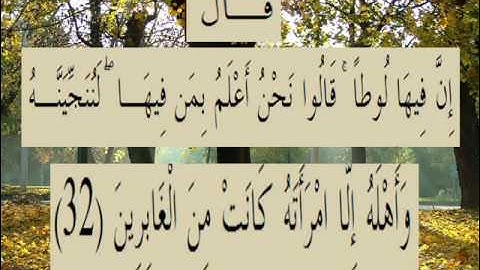 قَالَ
إِنَّ فِيهَا لُوطًا ۚ قَالُوا نَحْنُ أَعْلَمُ بِمَن فِيهَا ۖ لَنُنَجِّيَنَّهُ
وَأَهْلَهُ إِلَّا امْرَأَتَهُ كَانَتْ مِنَ الْغَابِرِينَ (32)